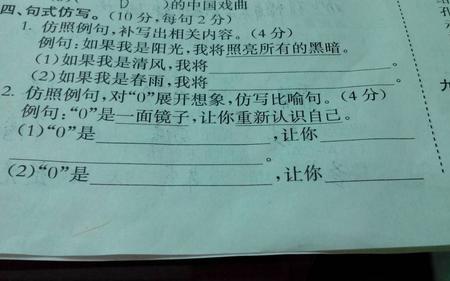 D )的中国戏曲
四、句式仿写。(10分,每句2分)
1. 仿照例句,补写出相关内容。(4分)
例句:如果我是阳光,我将照亮所有的黑暗。
(1)如果我是清风,我将____________________。
(2)如果我是春雨,我将____________________。
2. 仿照例句,对“0”展开想象,仿写比喻句。(4分)
例句:“0”是一面镜子,让你重新认识自己。
(1)“0”是____________________,让你__________
____________________。
(2)“0”是________________,让你__________
九